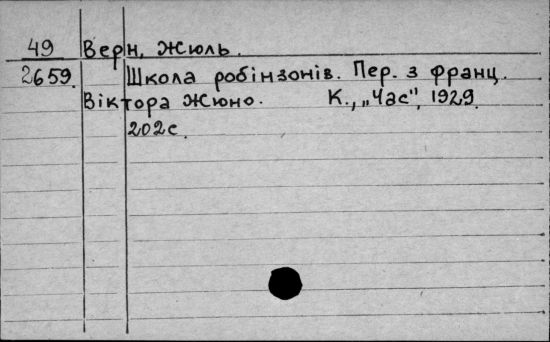 49 Верн, Жюль.
2659. Школа робінзонів. Пер. з франц.
Віктора Жюно. К., „Час", 1929.
202с.